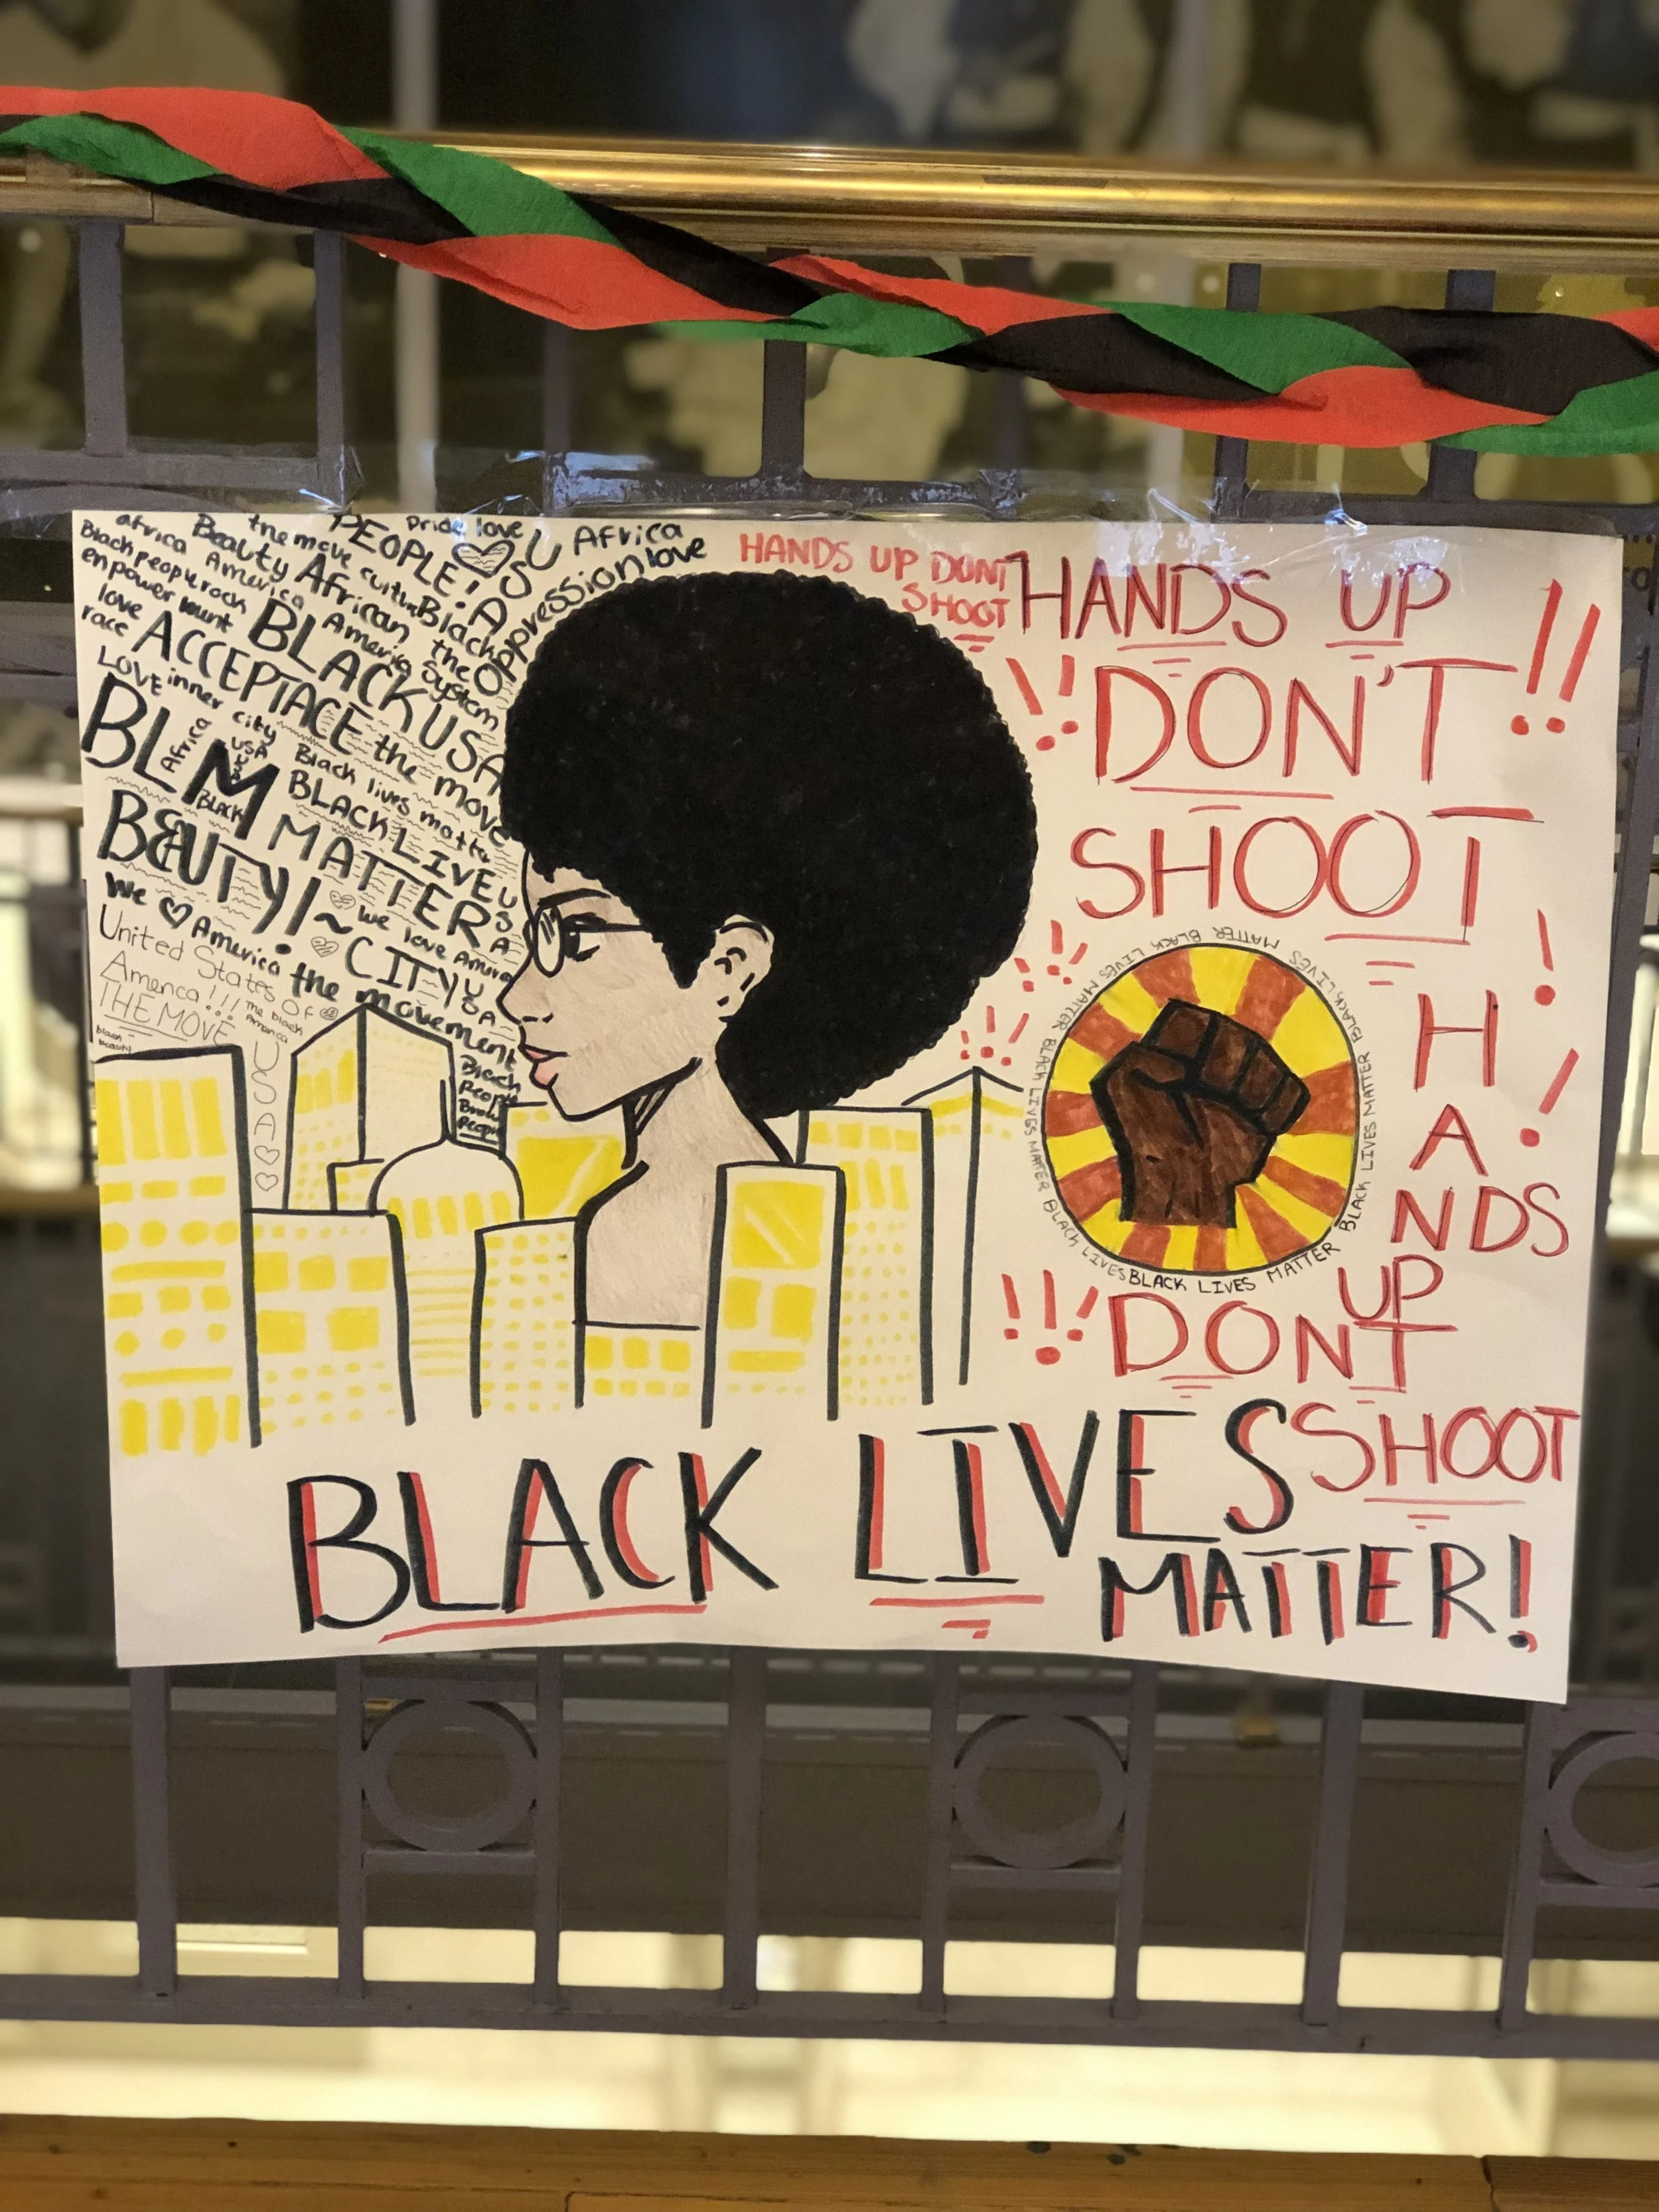 PEOPLE!
Pride love
USA
Africa
the move
africa
Beauty
culture
Oppression
love
Black people rock
America
African
Black
empowerment
BLACK
America
the
System
love
race
ACCEPTACE
USA
LOVE
inner city
the move
BLM
Africa
USA
BLACK
Black lives matter
BLACK LIVES
MATTER
USA
BEAUTY!~
We ♡ America
we love America
CITY
USA
the movement
United States Of
America!!!
THE MOVE
The black
America
black
beauty
USA
Black
People
Brown
People
HANDS UP DONT
SHOOT
HANDS UP
!! DON'T !!
SHOOT
BLACK LIVES MATTER BLACK LIVES MATTER BLACK LIVES MATTER BLACK LIVES MATTER BLACK LIVES MATTER BLACK LIVES
H
A
NDS
UP
!!! DONT
SHOOT
BLACK LIVES
MATTER!